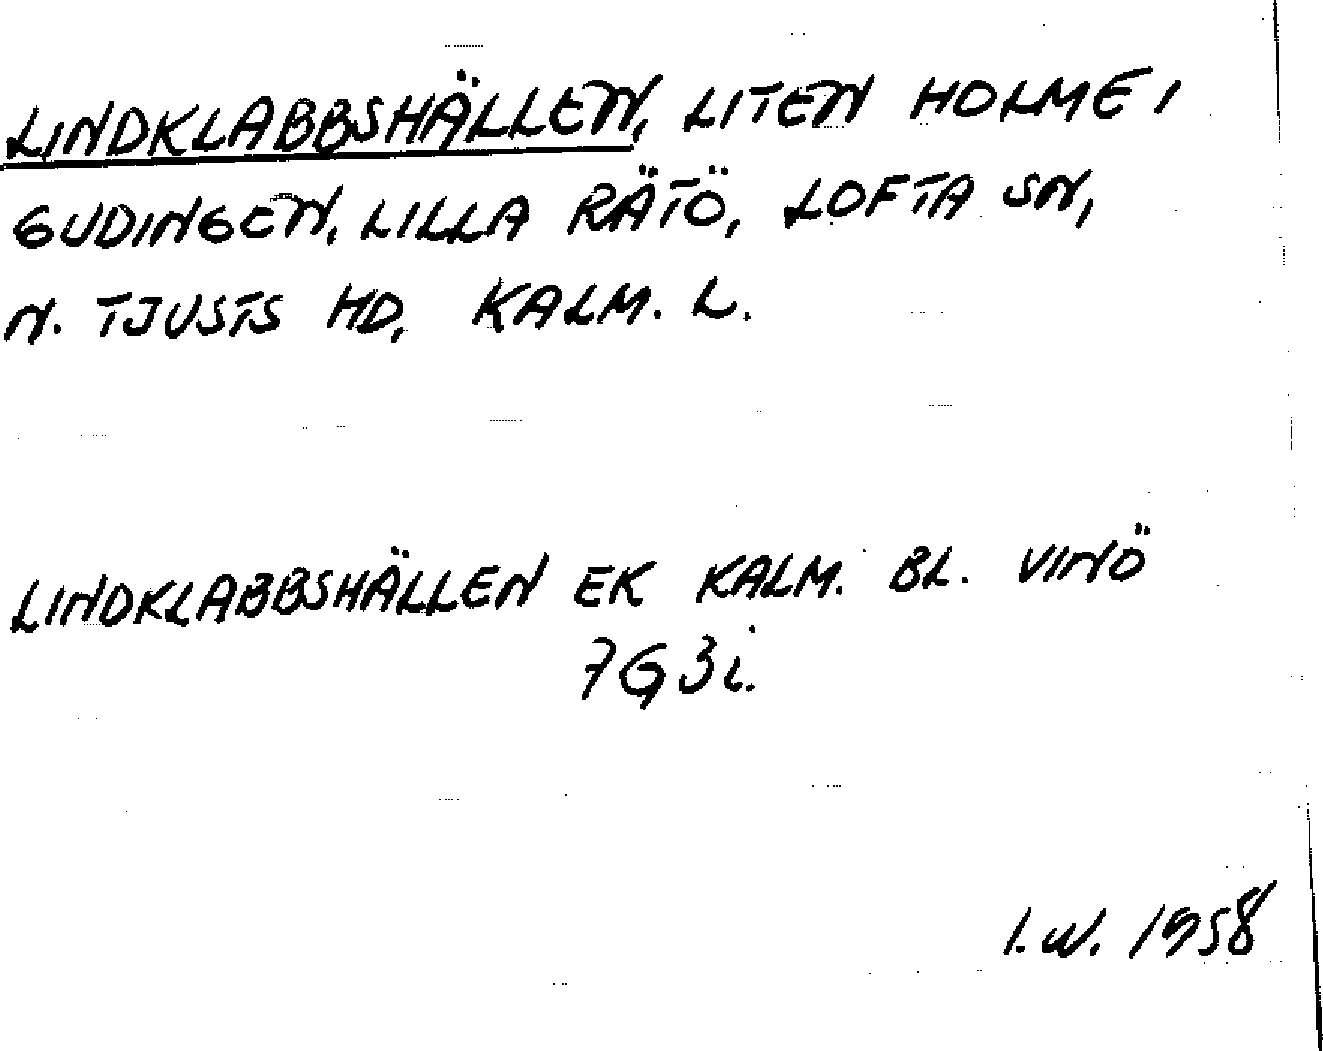 LINDKLABBSHÄLLEN, LITEN HOLME I
GUDINGEN, LILLA RÄTÖ, LOFTA SN,
N. TJUSTS HD, KALM. L.
LINDKLABBSHÄLLEN EK KALM. BL. VINÖ
7G3i.
I.W. 1958